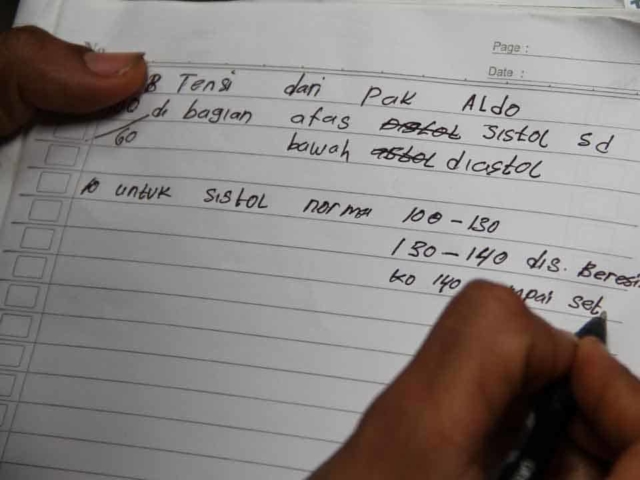 No
Page :
Date :
Tensi dari Pak Aldo
di bagian atas sistol sd
60 bawah diastol
untuk sistol norma 100 - 130
130 - 140 dis. Beresi
ko 140 set